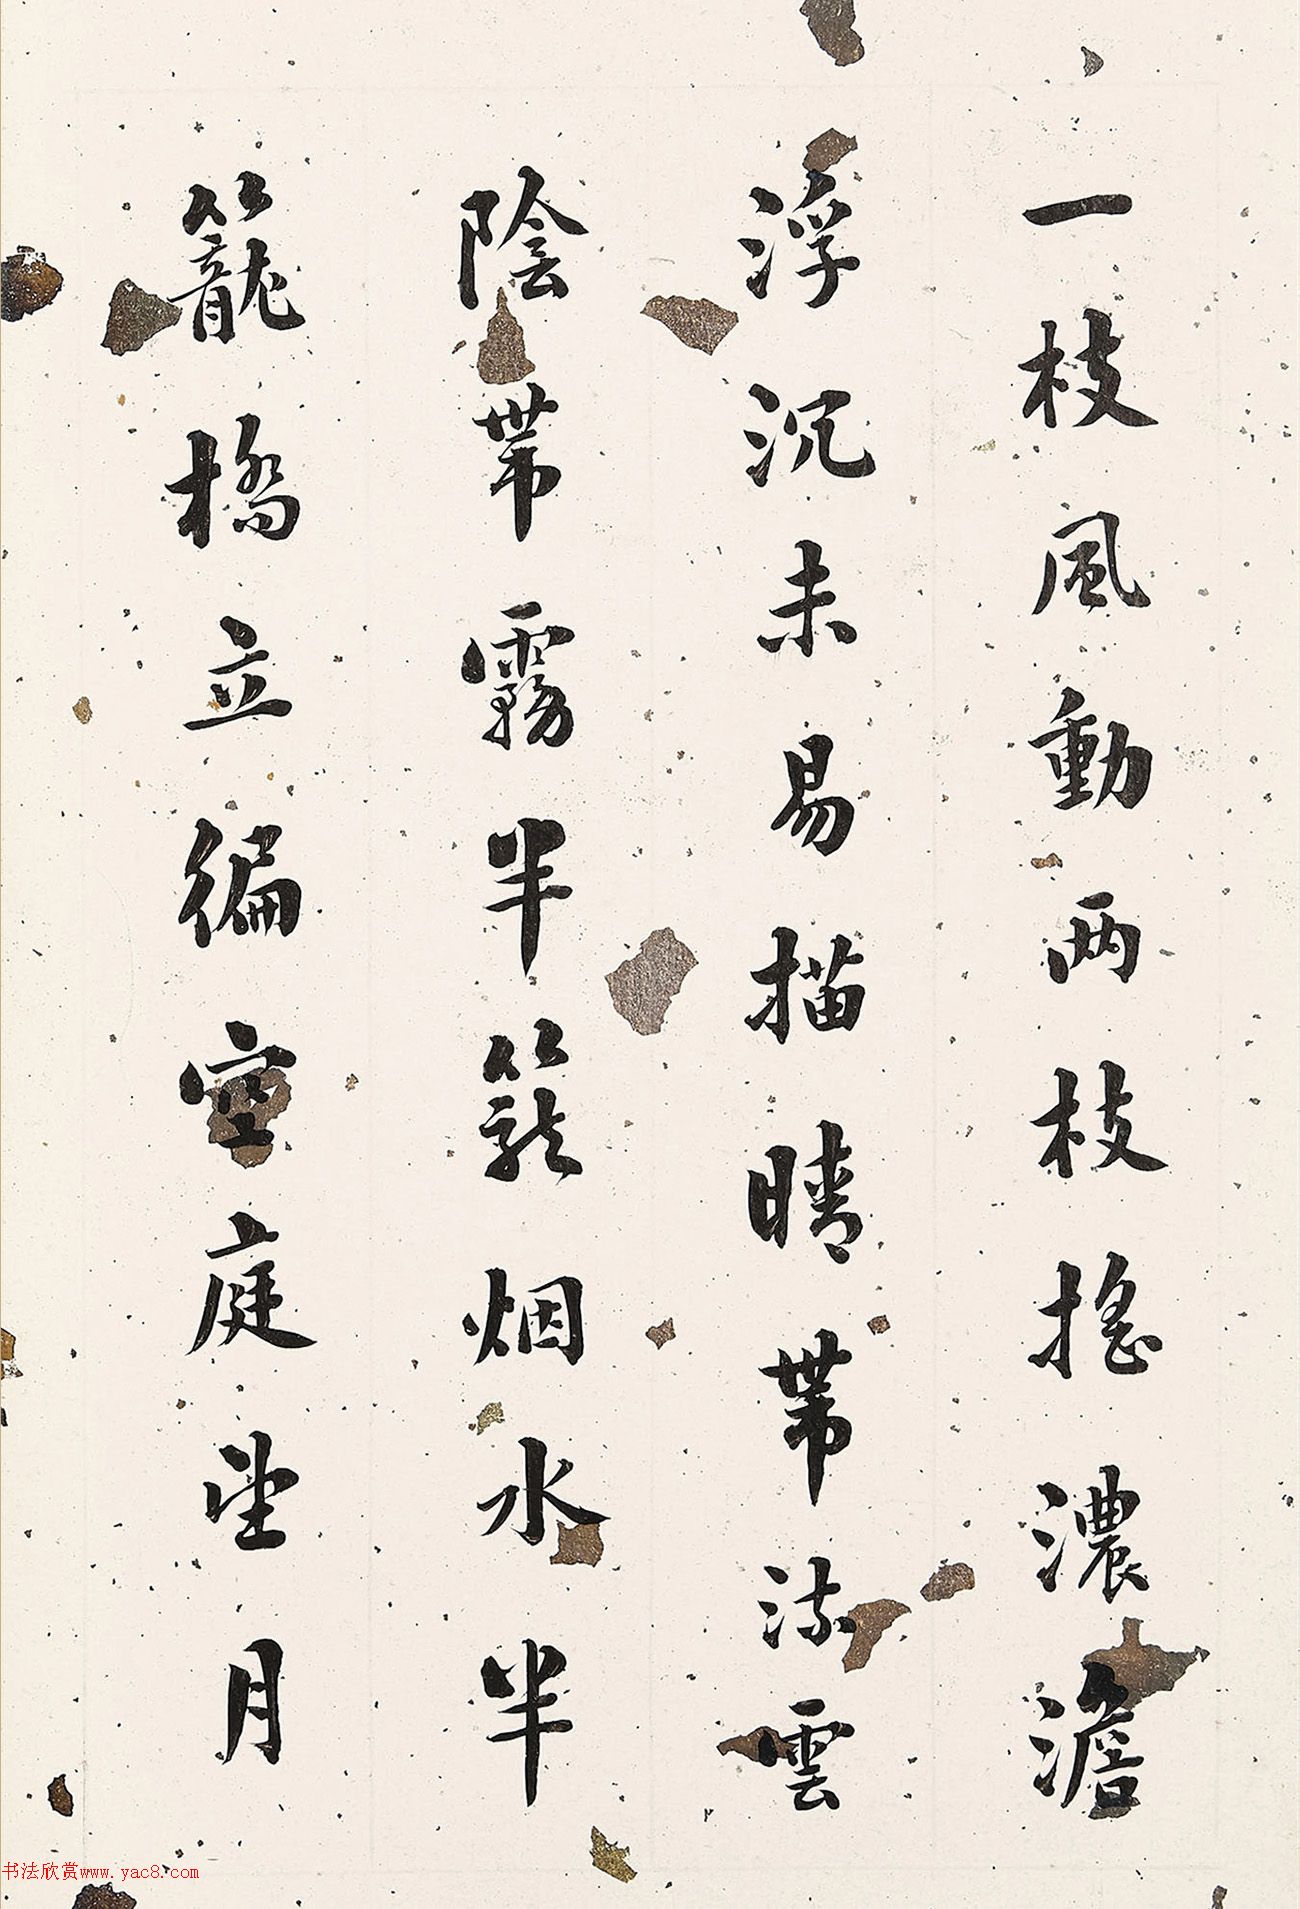 一枝風動兩枝搖濃澹
浮沉未易描晴帶流雲
陰帶霧半籠烟水半
籠橋立徧空庭望月
书法欣赏www.yac8.com